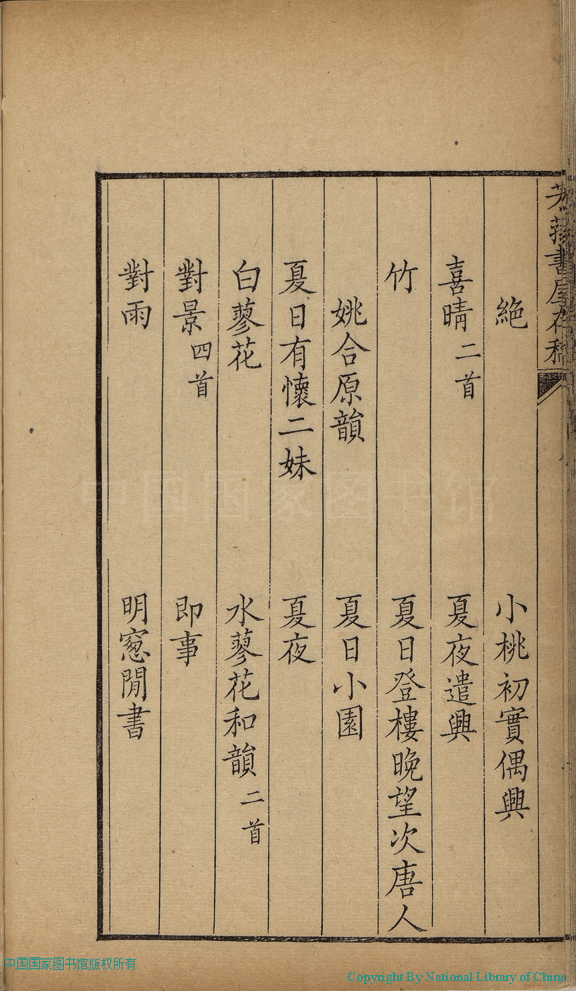 芳蓀書屋存稿
絕　小桃初實偶興
喜晴二首　夏夜遣興
竹　夏日登樓晚望次唐人
姚合原韻　夏日小園
夏日有懷二妹　夏夜
白蓼花　水蓼花和韻二首
對景四首　即事
對雨　明窻閒書
中国国家图书馆
中国国家图书馆版权所有
Copyright By National Library of China